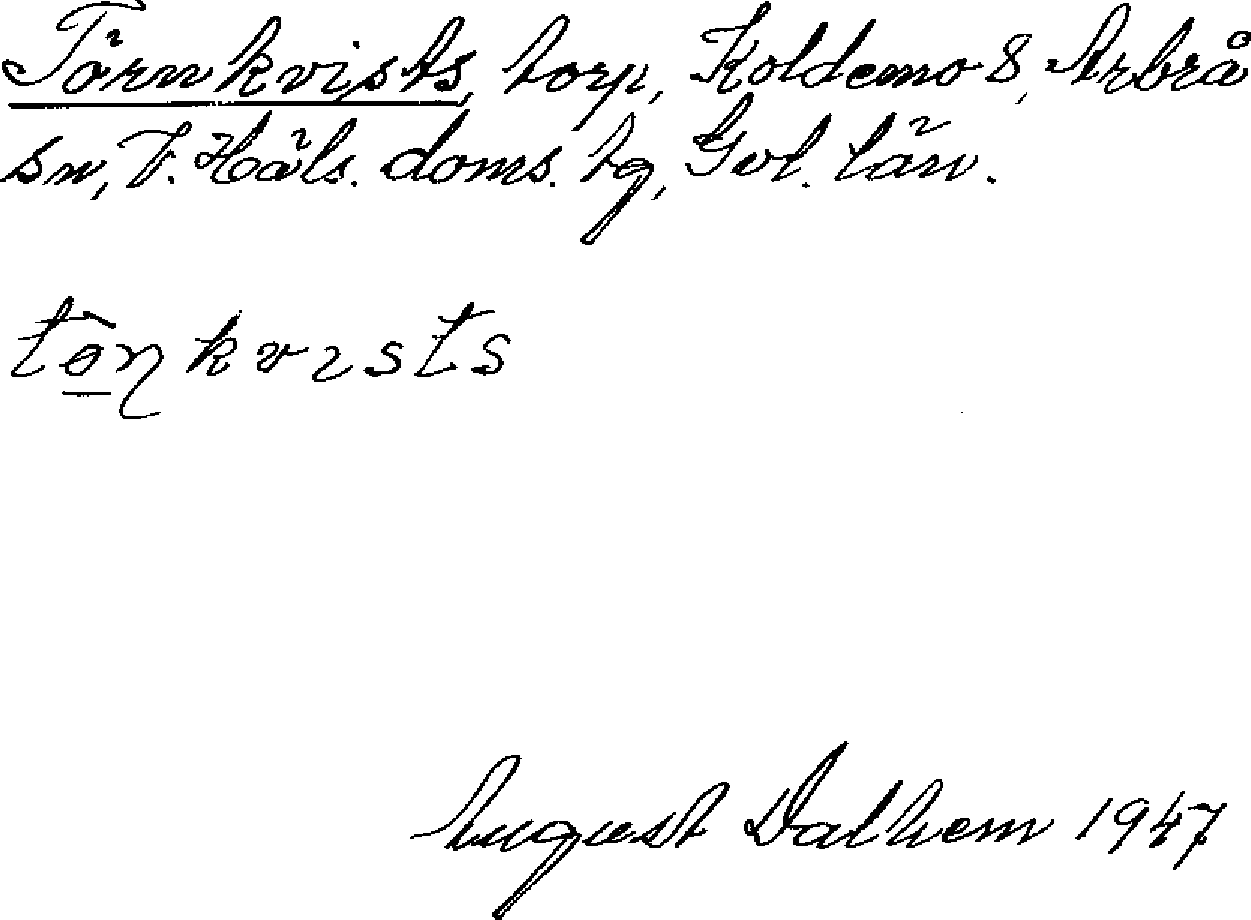 Törnkvists, torp, Koldemo 8, Arbrå
sn, V. Häls. doms. tg, Gvl. län.
tön̡kvısts
August Dalhem 1947